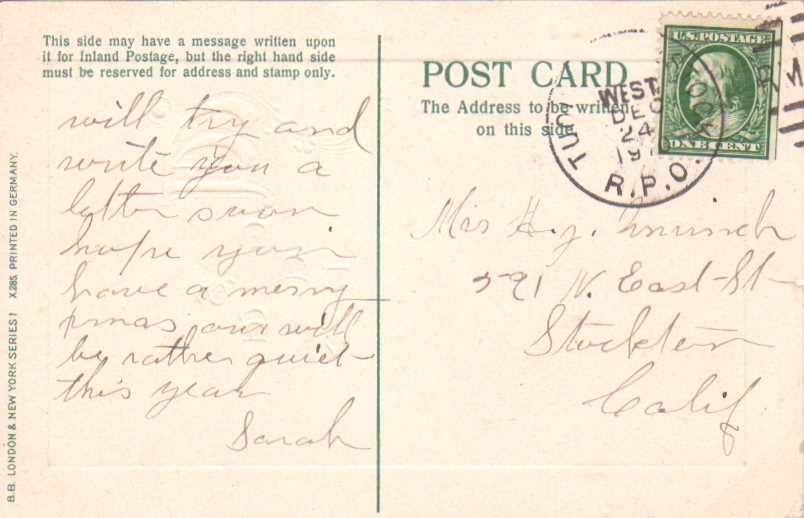 This side may have a message written upon
it for Inland Postage, but the right hand side
must be reserved for address and stamp only.
will try and
write you a
letter soon
hope you
have a merry
xmas our will
be rather quiet
this year
Sarah
B.B. LONDON & NEW YORK SERIES X285 PRINTED IN GERMANY.
POST CARD
The Address to be written
on this side
U.S. POSTAGE
ONE CENT
WEST
DEC
24
R.P.O.
H.
N. East St
Stockton
Calif